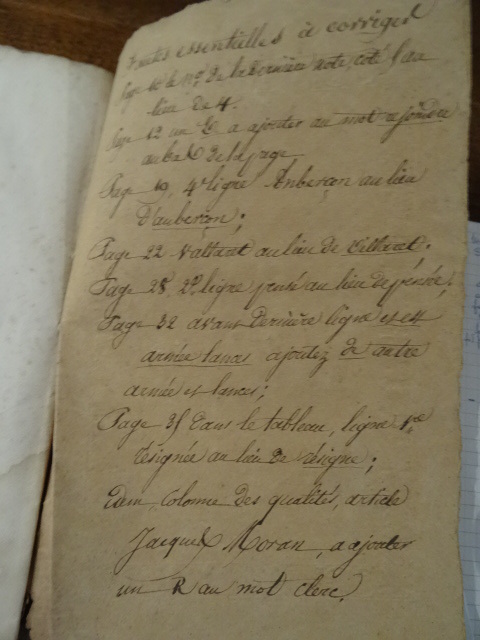 Fautes essentielles à corriger
Page 10 le nº de la dernière note, côté 5 au
lieu de 4.
Page 12 un E a ajouter au mot
au bas de la page
Page 19, 4e ligne Anberçon au lieu
D'auberçon;
Page 22 Vallant au lieu de Villaret;
Page 28, 2e ligne pensé au lieu de pensée;
Page 32 avant dernière ligne et est
armée lances ajoutez de autre
armée et lances;
Page 35 dans le tableau, ligne 1re
résignée au lieu de résigne;
idem, Colonne des qualités, article
Jacques Moran, a ajouter
un R au mot clerc.